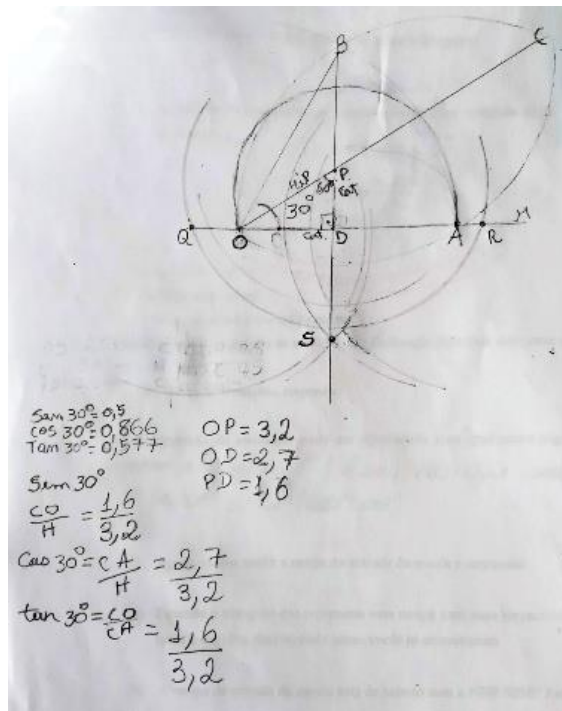 B
C
P.
60°
cat
30°
Q
O
C
cat.
D
A
R
M
S
Sen 30°= 0,5
cos 30°= 0,866
Tan 30°= 0,577
OP = 3,2
OD = 2,7
PD = 1,6
Sen 30°
CO/H = 1,6/3,2
Cos 30° = CA/H = 2,7/3,2
tan 30° = CO/CA = 1,6/3,2